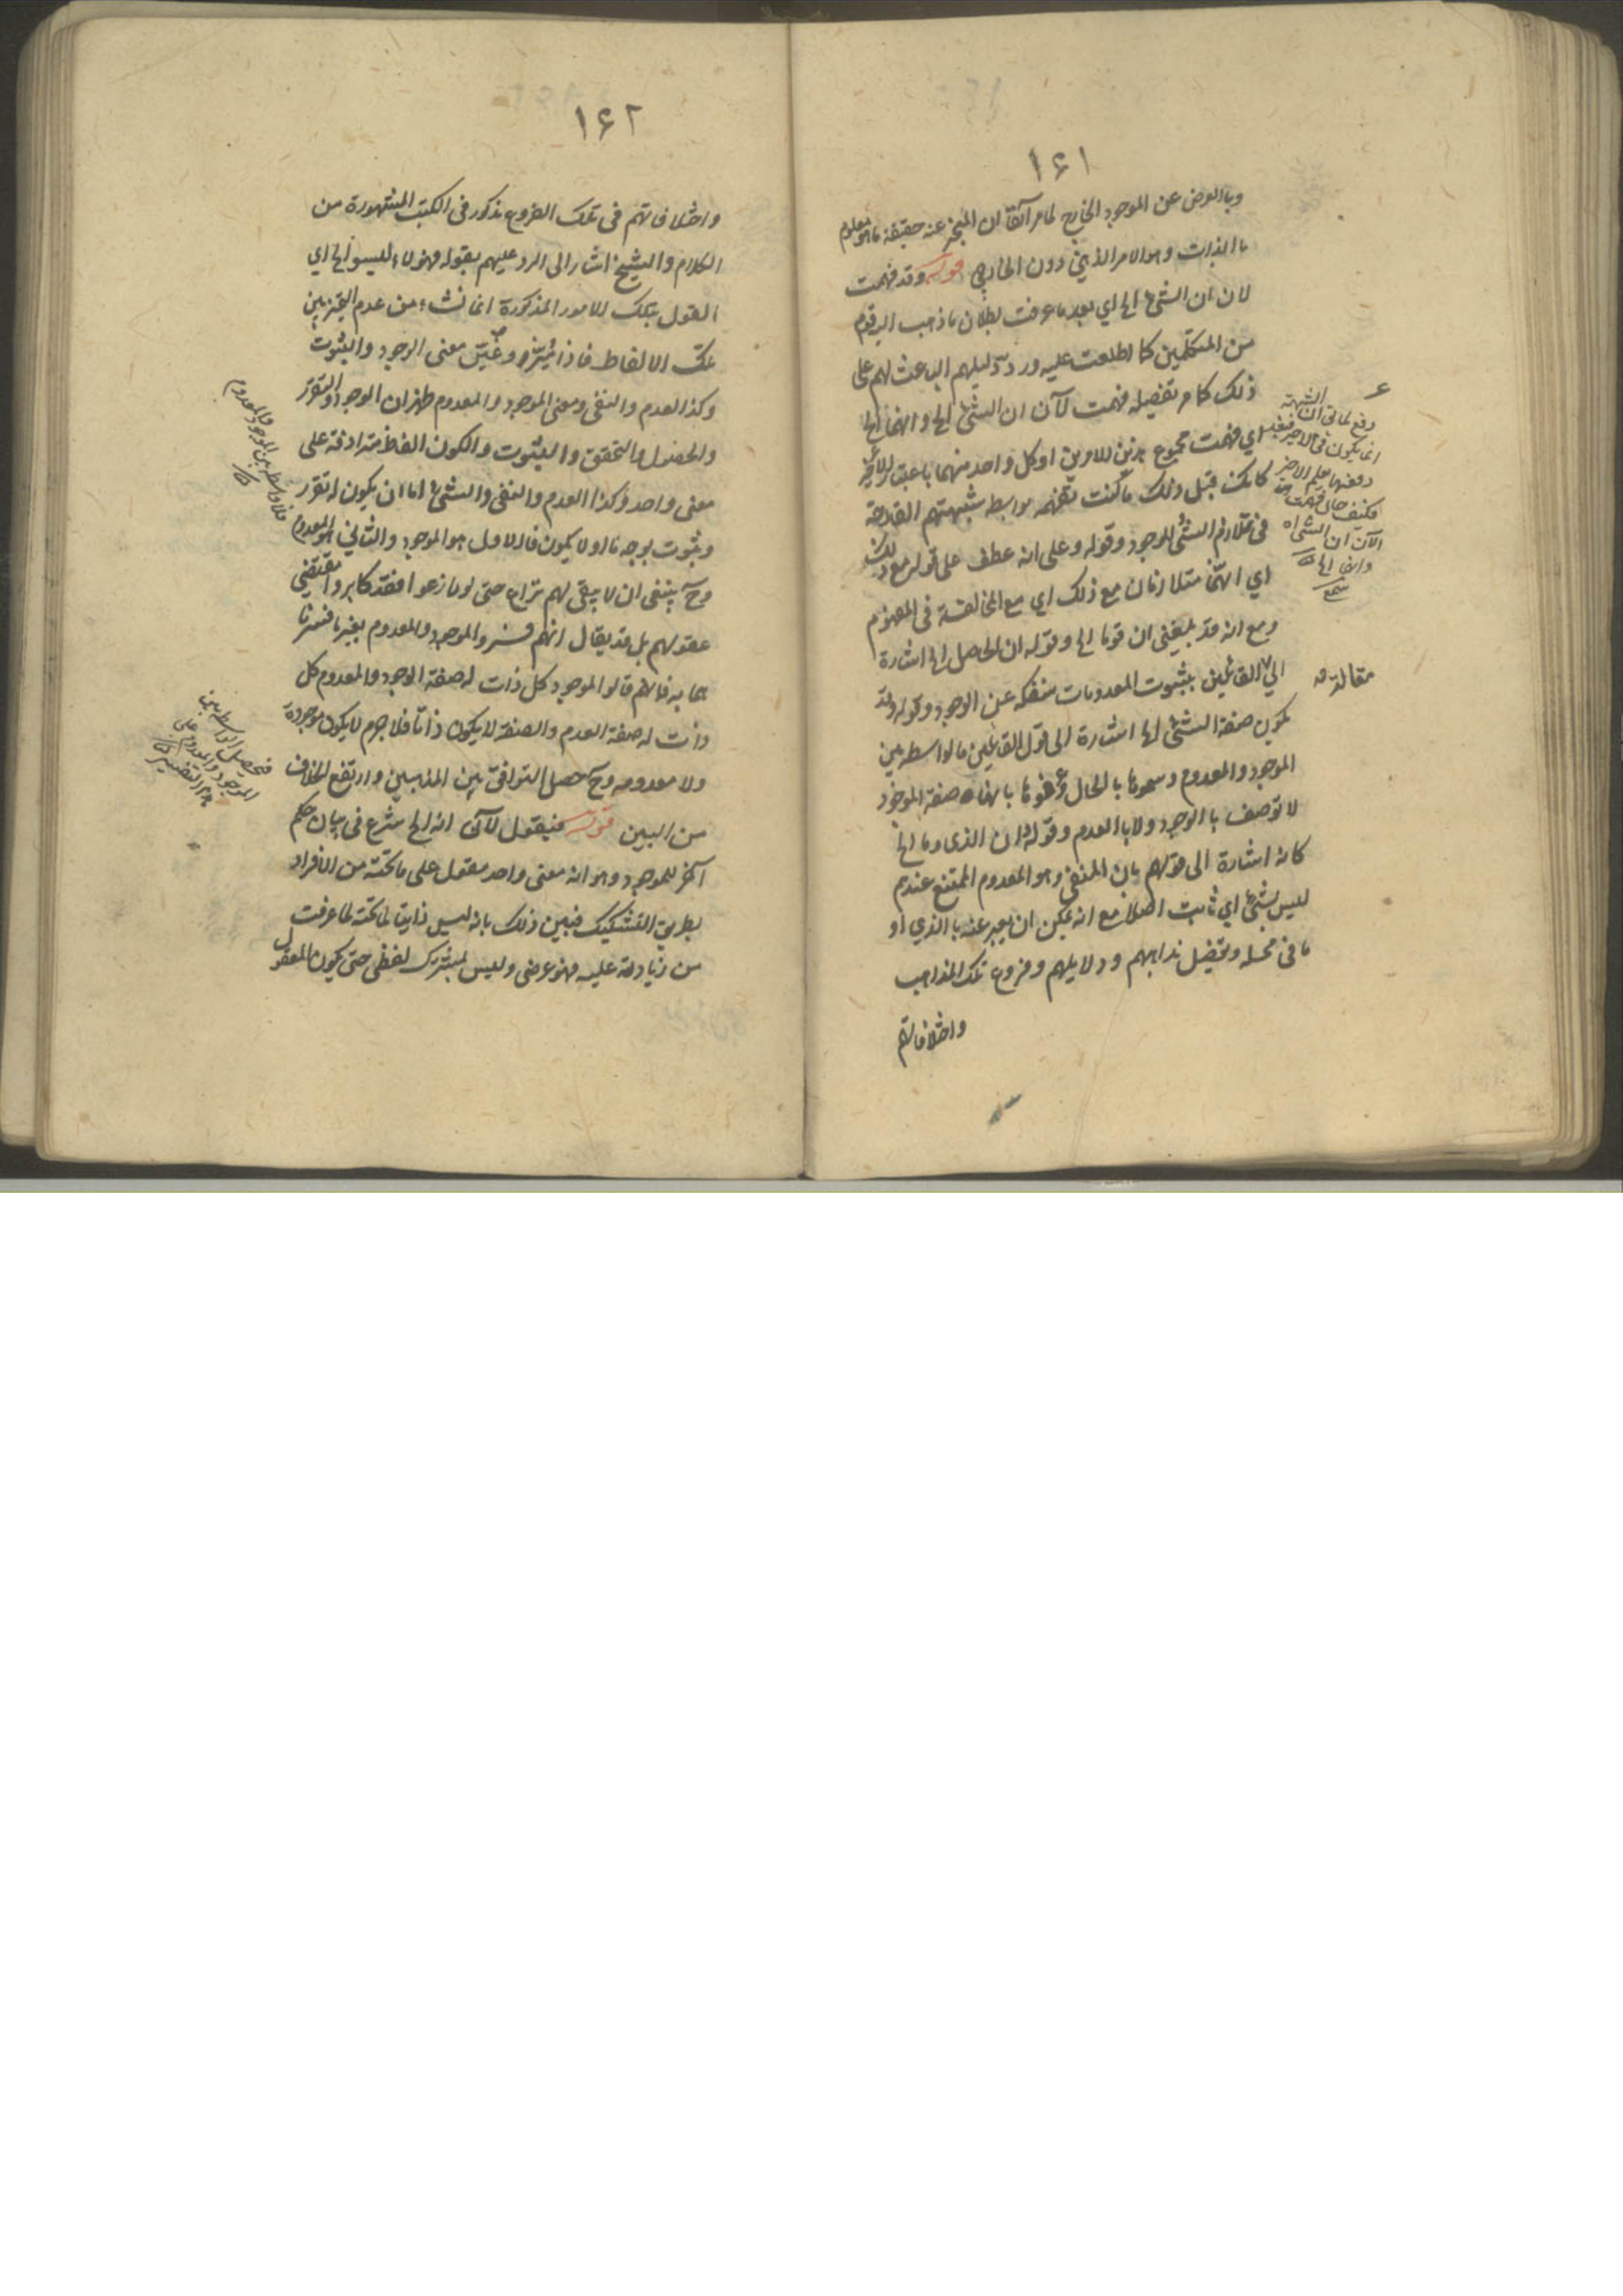 ١٦١
وبالعرض عن الموجود الخارج لما مر آنفا ان المخبر عنه حقيقة ما هو معلوم
بالذات وهو الامر الذهني دون الخارجي قوله وقد فهمت
لان ان الشئ الخ اي بعد ما عرفت بطلان ما ذهب اليه قوم
من المتكلمين كما اطلعت عليه ورد دليلهم الباعث لهم على
ذلك كما مر تفصيله فهمت الآن ان الشئ الخ وانهما الخ
اي فهمت مجموع هذين الامرين او كل واحد منهما باعتبار الاخير
كانك قبل ذلك ما كنت تفهمه بواسطة شبهتهم القادحة
في تلازم الشئ للموجود وقوله وعلى انه عطف على قوله مع ذلك
اي انهما متلازمان مع ذلك اي مع المخالفة في المفهوم
ومع انه قد بلغني ان قوما الخ وقوله ان الحاصل الخ اشارة
الى القائلين بثبوت المعدومات منفكة عن الوجود وكوله وقد
يكون صفة الشئ الخ اشارة الى قول القائلين بالواسطة بين
الموجود والمعدوم وسموها بالحال وعرفوها بانها صفة الموجود
لا توصف بالوجود ولا بالعدم وقوله ان الذي وما الخ
كانه اشارة الى قولهم بان المنفي وهو المعدوم الممتنع عندهم
ليس بشئ اي ثابت اصلا مع انه يمكن ان يعبر عنه بالذي او
ما في محله وتفصيل مذاهبهم ودلايلهم وفروع تلك المذاهب
واختلافاتهم
دفع لما في ان الشبهة
انما يكون في الاخير فبقيد
دفعها يعلم الاخير
فكيف حال فهمت
الآن ان الشئ اه
وانهما الخ
مقالته
١٦٢
واختلافاتهم في تلك الفروع مذكور في الكتب المشهورة من
الكلام والشيخ اشار الى الرد عليهم بقوله فهؤلاء ليسوا الخ اي
القول بتلك الامور المذكورة انما نشاء من عدم التميز بين
تلك الالفاظ فاذا تميز وعين معنى الوجود والثبوت
وكذا العدم والنفي ومعنى الموجود والمعدوم ظهر ان الوجود والتقرر
والحصول والتحقق والثبوت والكون الفاظ مترادفة على
معنى واحد وكذا العدم والنفي والشئ اما ان يكون له تقرر
وثبوت بوجه ما او لا يكون فالاول هو الموجود والثاني هو المعدوم
وح ينبغي ان لا يبقى لهم نزاع حتى لو نازعوا فقد كابروا مقتضى
عقولهم بل قد يقال انهم فسروا الموجود والمعدوم بغير ما فسرنا
هما به فانهم قالوا الموجود كل ذات له صفة الوجود والمعدوم كل
ذات له صفة العدم والصفة لا يكون ذاتا فلا جرم لا يكون موجودة
ولا معدومة وح حصل التوافق بين المذهبين وارتفع الخلاف
من البين قوله فنقول الآن انه الخ شرع في بيان حكم
آخر للموجود وهو انه معنى واحد مقول على ما تحته من الافراد
بطريق التشكيك فبين ذلك بانه ليس ذاتيا لما تحته لما عرفت
من زيادته عليه فهو عرضي وليس بمشترك لفظي حتى يكون المقول
فلا واسطة بين الموجود والمعدوم
فتحصل الواسطة بين
الموجود والمعدوم على
هذا التفسير